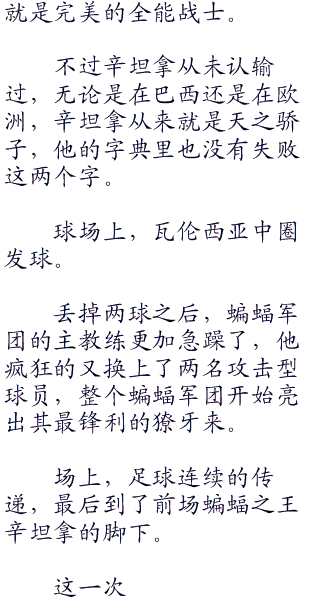 就是完美的全能战士。
不过辛坦拿从未认输
过，无论是在巴西还是在欧
洲，辛坦拿从来就是天之骄
子，他的字典里也没有失败
这两个字。
球场上，瓦伦西亚中圈
发球。
丢掉两球之后，蝙蝠军
团的主教练更加急躁了，他
疯狂的又换上了两名攻击型
球员，整个蝙蝠军团开始亮
出其最锋利的獠牙来。
场上，足球连续的传
递，最后到了前场蝙蝠之王
辛坦拿的脚下。
这一次